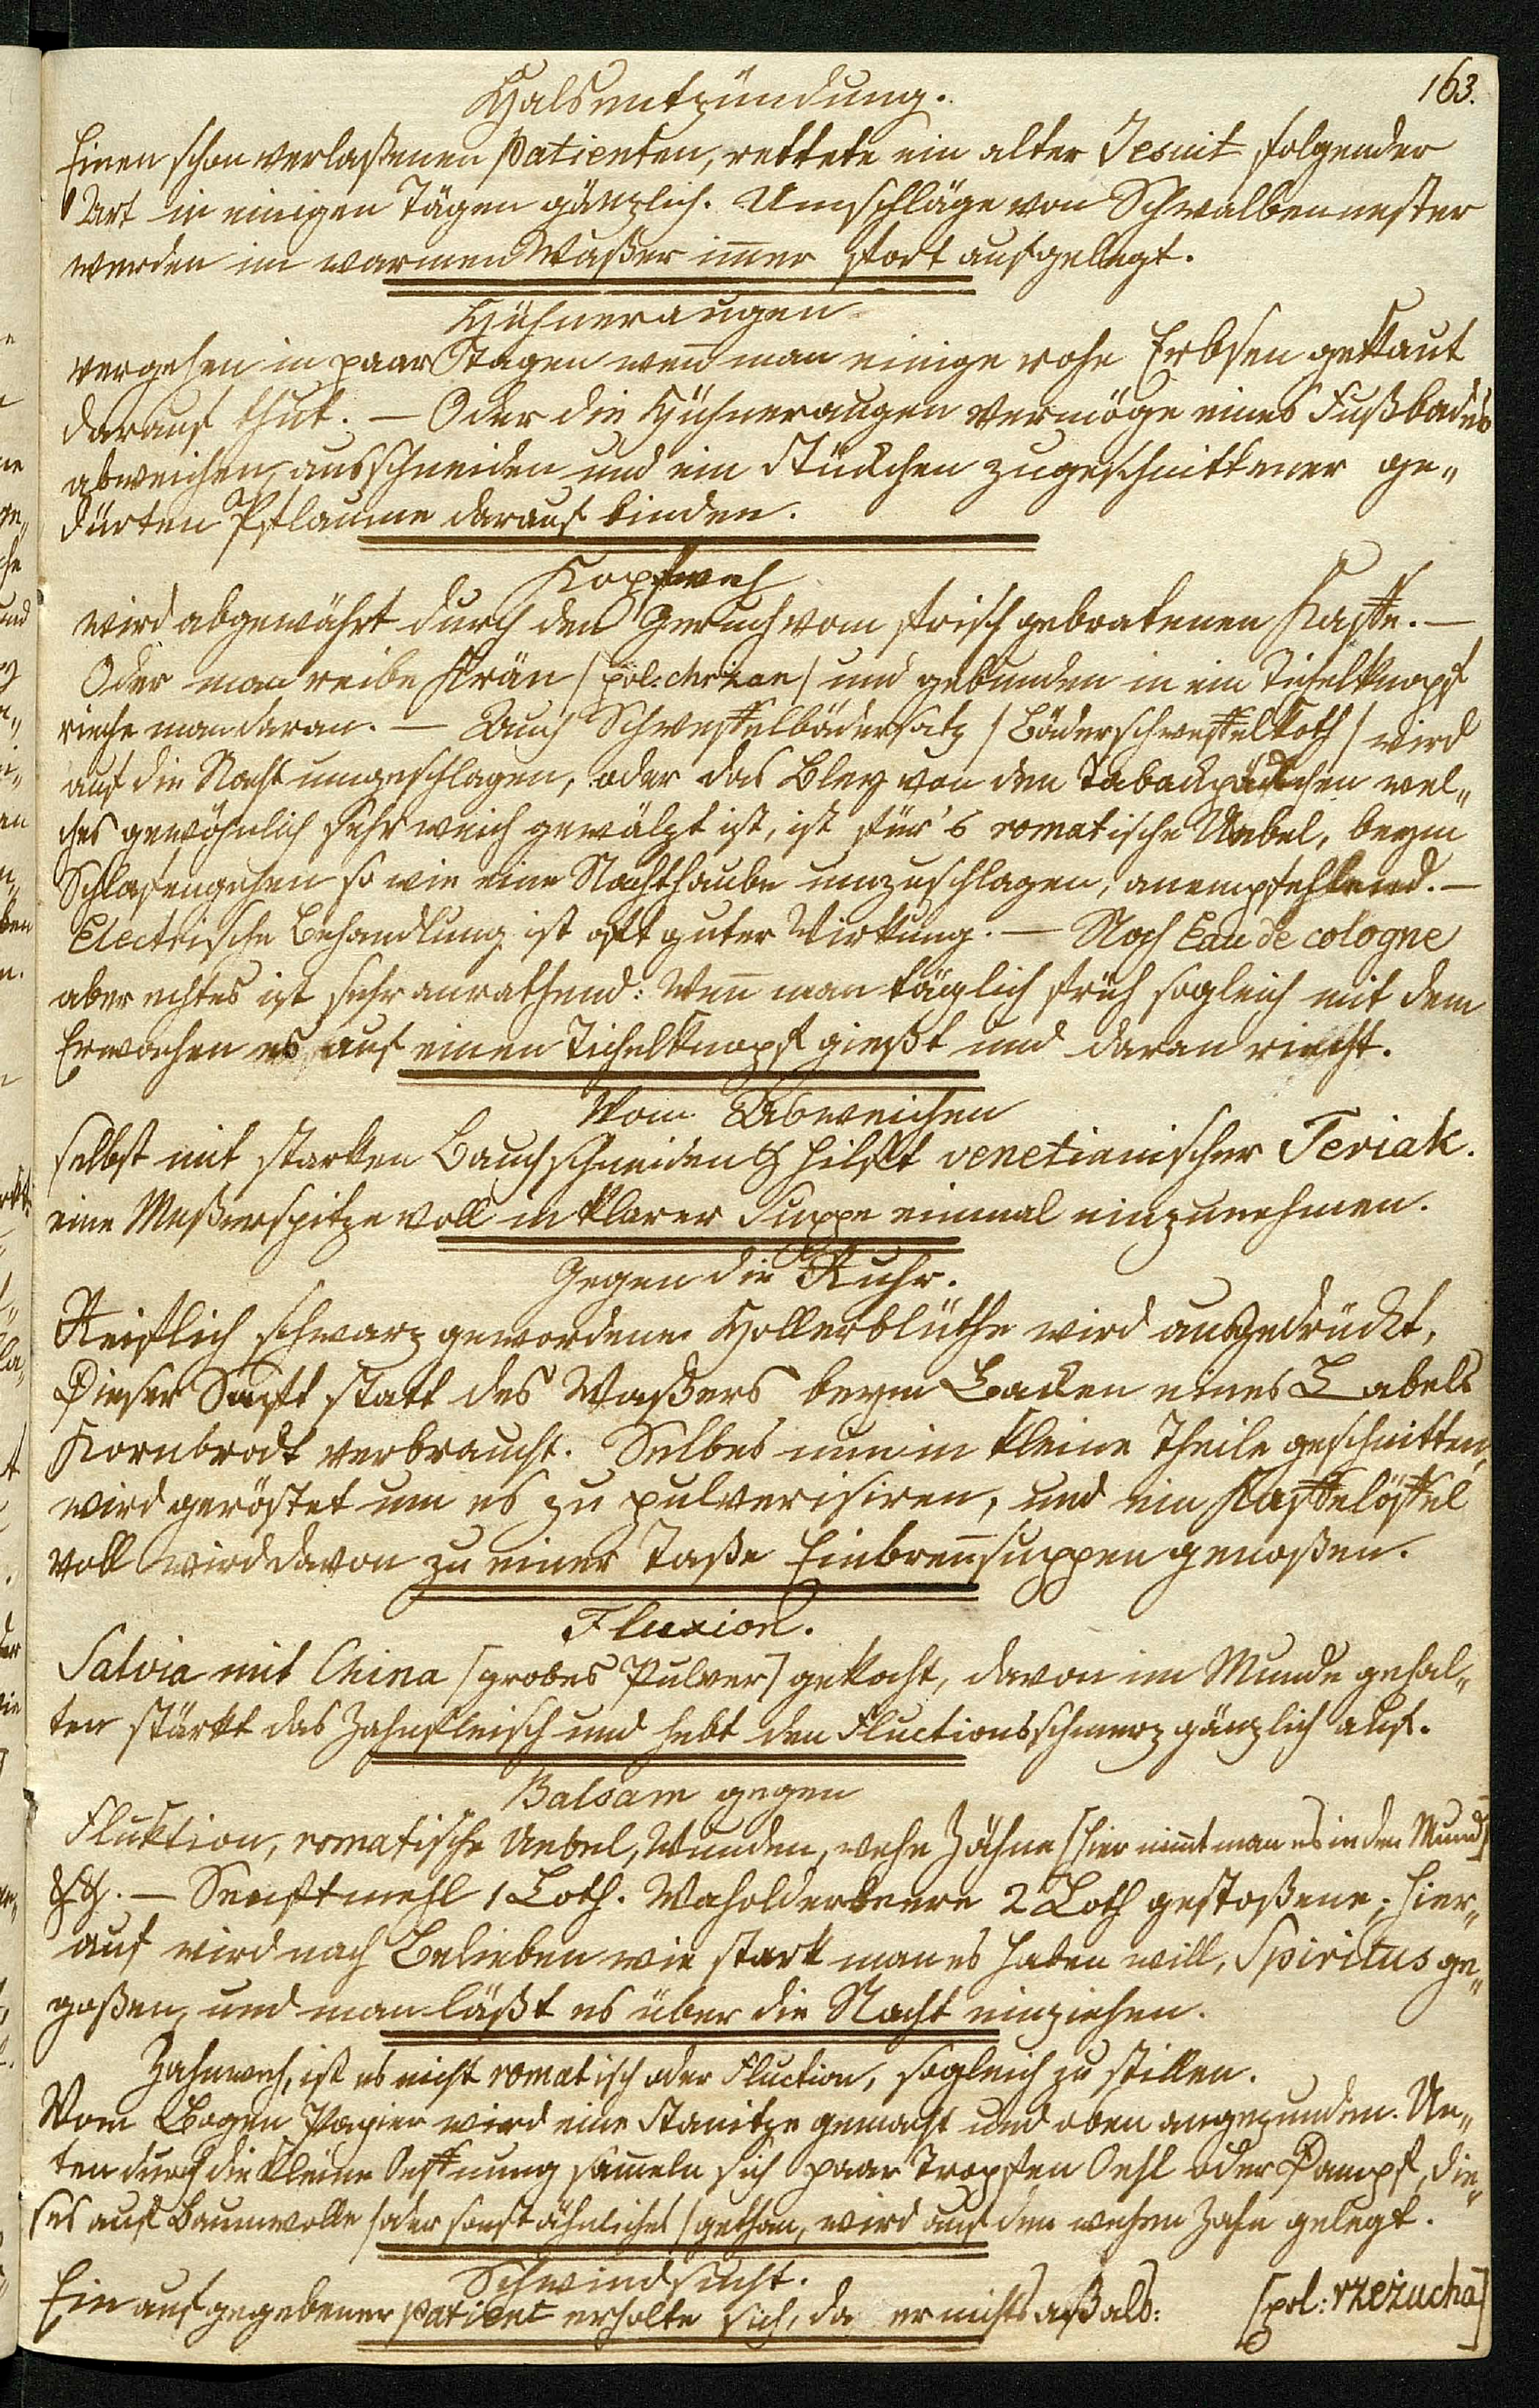 163.
Halsentzündung.
Einen schon verlaßenen Patienten, rettete ein alter Jesuit folgender
Art in einigen Tägen gänzlich. Umschläge von Schwalbennester
werden im warmen Waßer im̅er fort aufgelegt.
Hühneraugen
vergehen in paar Tagen wen̅ man einige rohe Erbsen gekaut
darauf thut. — Oder die Hühneraugen vermöge eines Fußbades
abweichen, ausschneiden und ein Stückchen zugeschnittener ge„
dürten Pflaume darauf binden.
Kopfweh
wird abgewährt durch den Geruch vom frisch gebratenen Kaffe. —
Oder man reibe Krän /pol. chrzan/ und gebunden in ein Tichelknopf
rieche man daran. — Auch Schweffelbädersatz /Bäderschweffelkoth/ wird
auf die Nacht umgeschlagen, oder das Bley von den Tabackpäckchen wel„
ches gewöhnlich sehr weich gewälzt ist, ist für's romatische Uebel, beym
Schlafengehen so wie eine Nachthaube umzuschlagen, anempfehlend. —
Electrische Behandlung ist oft guter Wirkung. — Noch Eau de cologne
aber echtes ist sehr anrathend: Wen̅ man täglich früh sogleich mit dem
Erwachen es auf einen Tichelknopf gießt und daran riecht.
Vom Abweichen
selbst mit starken Bauchschneiden hilft venetianischer Teriak.
eine Meßerspitze voll in klarer Suppe einmal einzunehmen.
Gegen die Ruhr.
Reiflich schwarz gewordene Hollerblüthe wird ausgedrückt,
Dieser Saft statt des Waßers beym Backen eines Labels
Kornbrodt verbraucht. Selbes nun in kleine Theile geschnitten,
wird geröstet um es zu pulverisiren, und ein Kaffelöffel
voll wird davon zu einer Taße Einbren̅suppen genoßen.
Fluxion.
Salvia mit China [grobes Pulver] gekocht, davon im Munde gehal„
ten stärkt das Zahnfleisch und hebt den Fluctionsschmerz gänzlich auf.
Balsam gegen
Fluktion, romatische Uebel, Wunden, wehe Zähne [hier nim̅t man es in den Mund]
&&. — Senftmehl 1 Loth. Waholderbeere 2 Loth gestoßene; hier„
auf wird nach Belieben wie stark man es haben will, Spiritus ge„
goßen, und man läßt es über die Nacht einziehen.
Zahnweh, ist es nicht romatisch oder Fluction, sogleich zu stillen.
Vom Bogen Papier wird eine Stanitze gemacht und oben angezunden. Un„
ten durch die kleine Oeffnung sam̅eln sich paar Tropfen Oehl oder Dampf, die„
ses auf Baumwolle /oder sonst ähnliches/ gethan, wird auf den wehen Zahn gelegt.
Schwindsucht.
Ein aufgegebener Patient erholte sich, da er nichts aß als: [pol: rzeżucha]